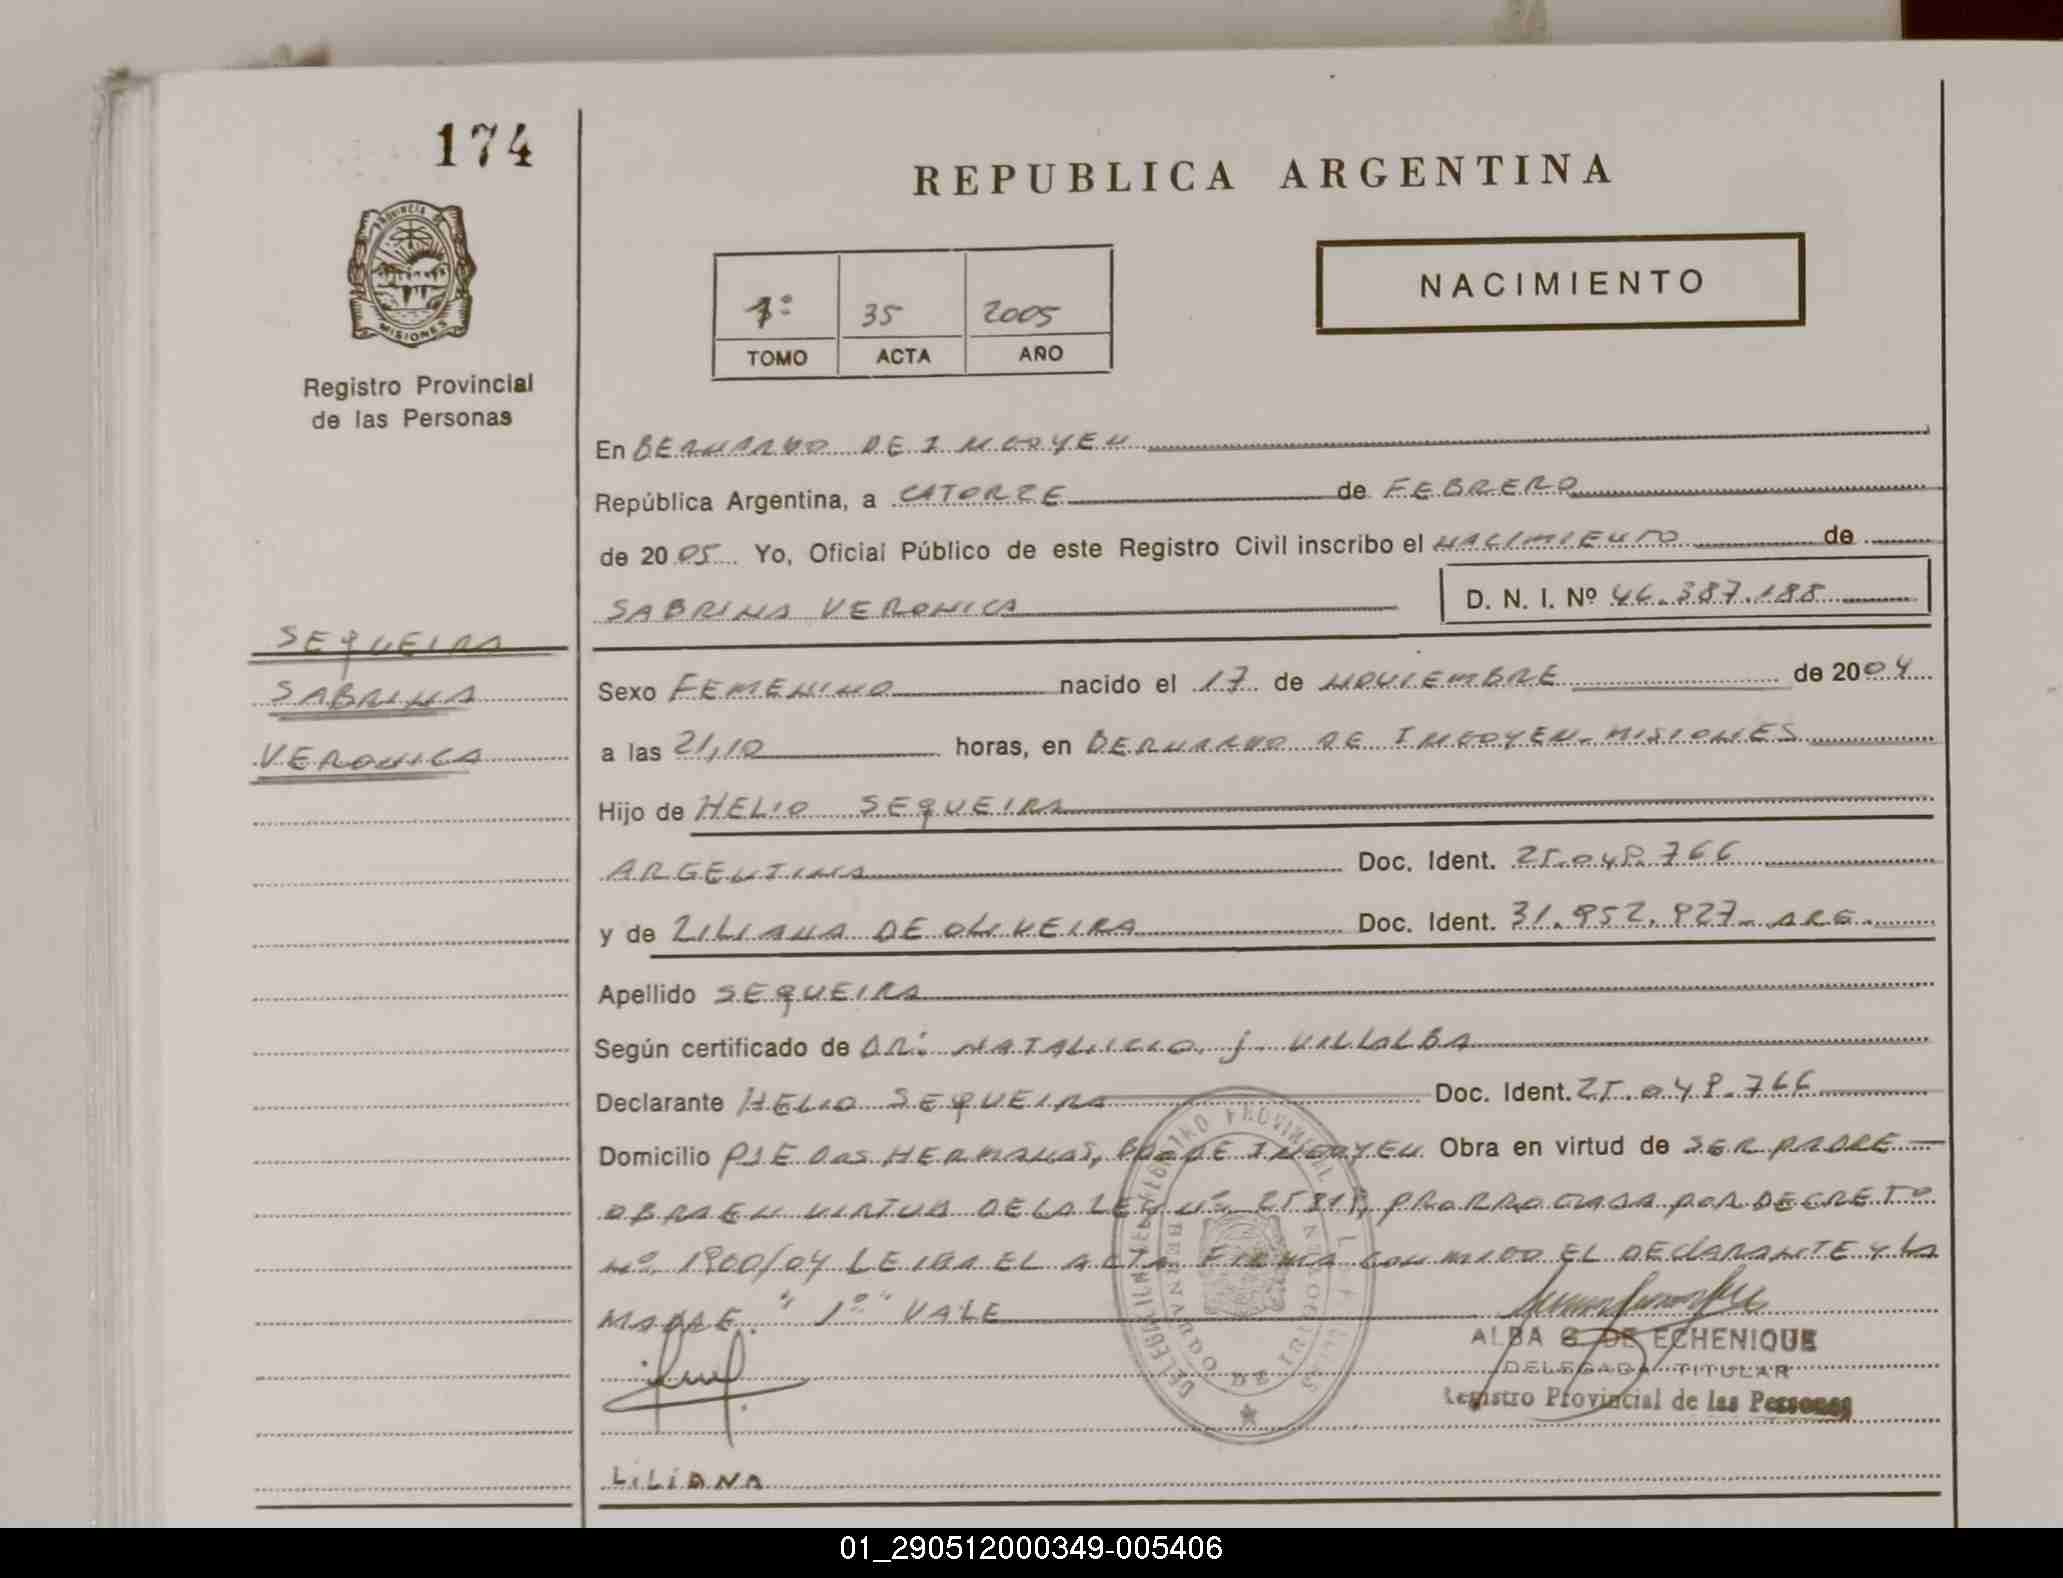 174
PROVINCIA DE
MISIONES
Registro Provincial
de las Personas
SEQUEIRA
SABRINA
VERONICA
REPUBLICA ARGENTINA
1º 35 2005
TOMO ACTA AÑO
NACIMIENTO
En BERNARDO DE IRIGOYEN
República Argentina, a CATORZE de FEBRERO
de 2005 Yo, Oficial Público de este Registro Civil inscribo el NACIMIENTO de
SABRINA VERONICA D. N. I. Nº 46.387.188
Sexo FEMENINO nacido el 17 de NOVIEMBRE de 2004
a las 21,10 horas, en BERNARDO DE IRIGOYEN-MISIONES
Hijo de HELIO SEQUEIRA
ARGENTINA Doc. Ident. 25.048.766
y de LILIANA DE OLIVEIRA Doc. Ident. 31.952.927- ARG.
Apellido SEQUEIRA
Según certificado de DR: NATALICIO J. VILLALBA
Declarante HELIO SEQUEIRA Doc. Ident. 25.048.766
Domicilio PJE DOS HERMANAS, BDO DE IRIGOYEN Obra en virtud de SER PADRE
OBRA EN VIRTUD DE LA LEY Nº 25818, PRORROGADA POR DECRETO
Nº 1900/04 LEIDA EL ACTA FIRMA CONMIGO EL DECLARANTE Y LA
MADRE. "1º" VALE
ALBA G DE ECHENIQUE
DELEGADA TITULAR
Registro Provincial de las Personas
LILIANA
01_290512000349-005406